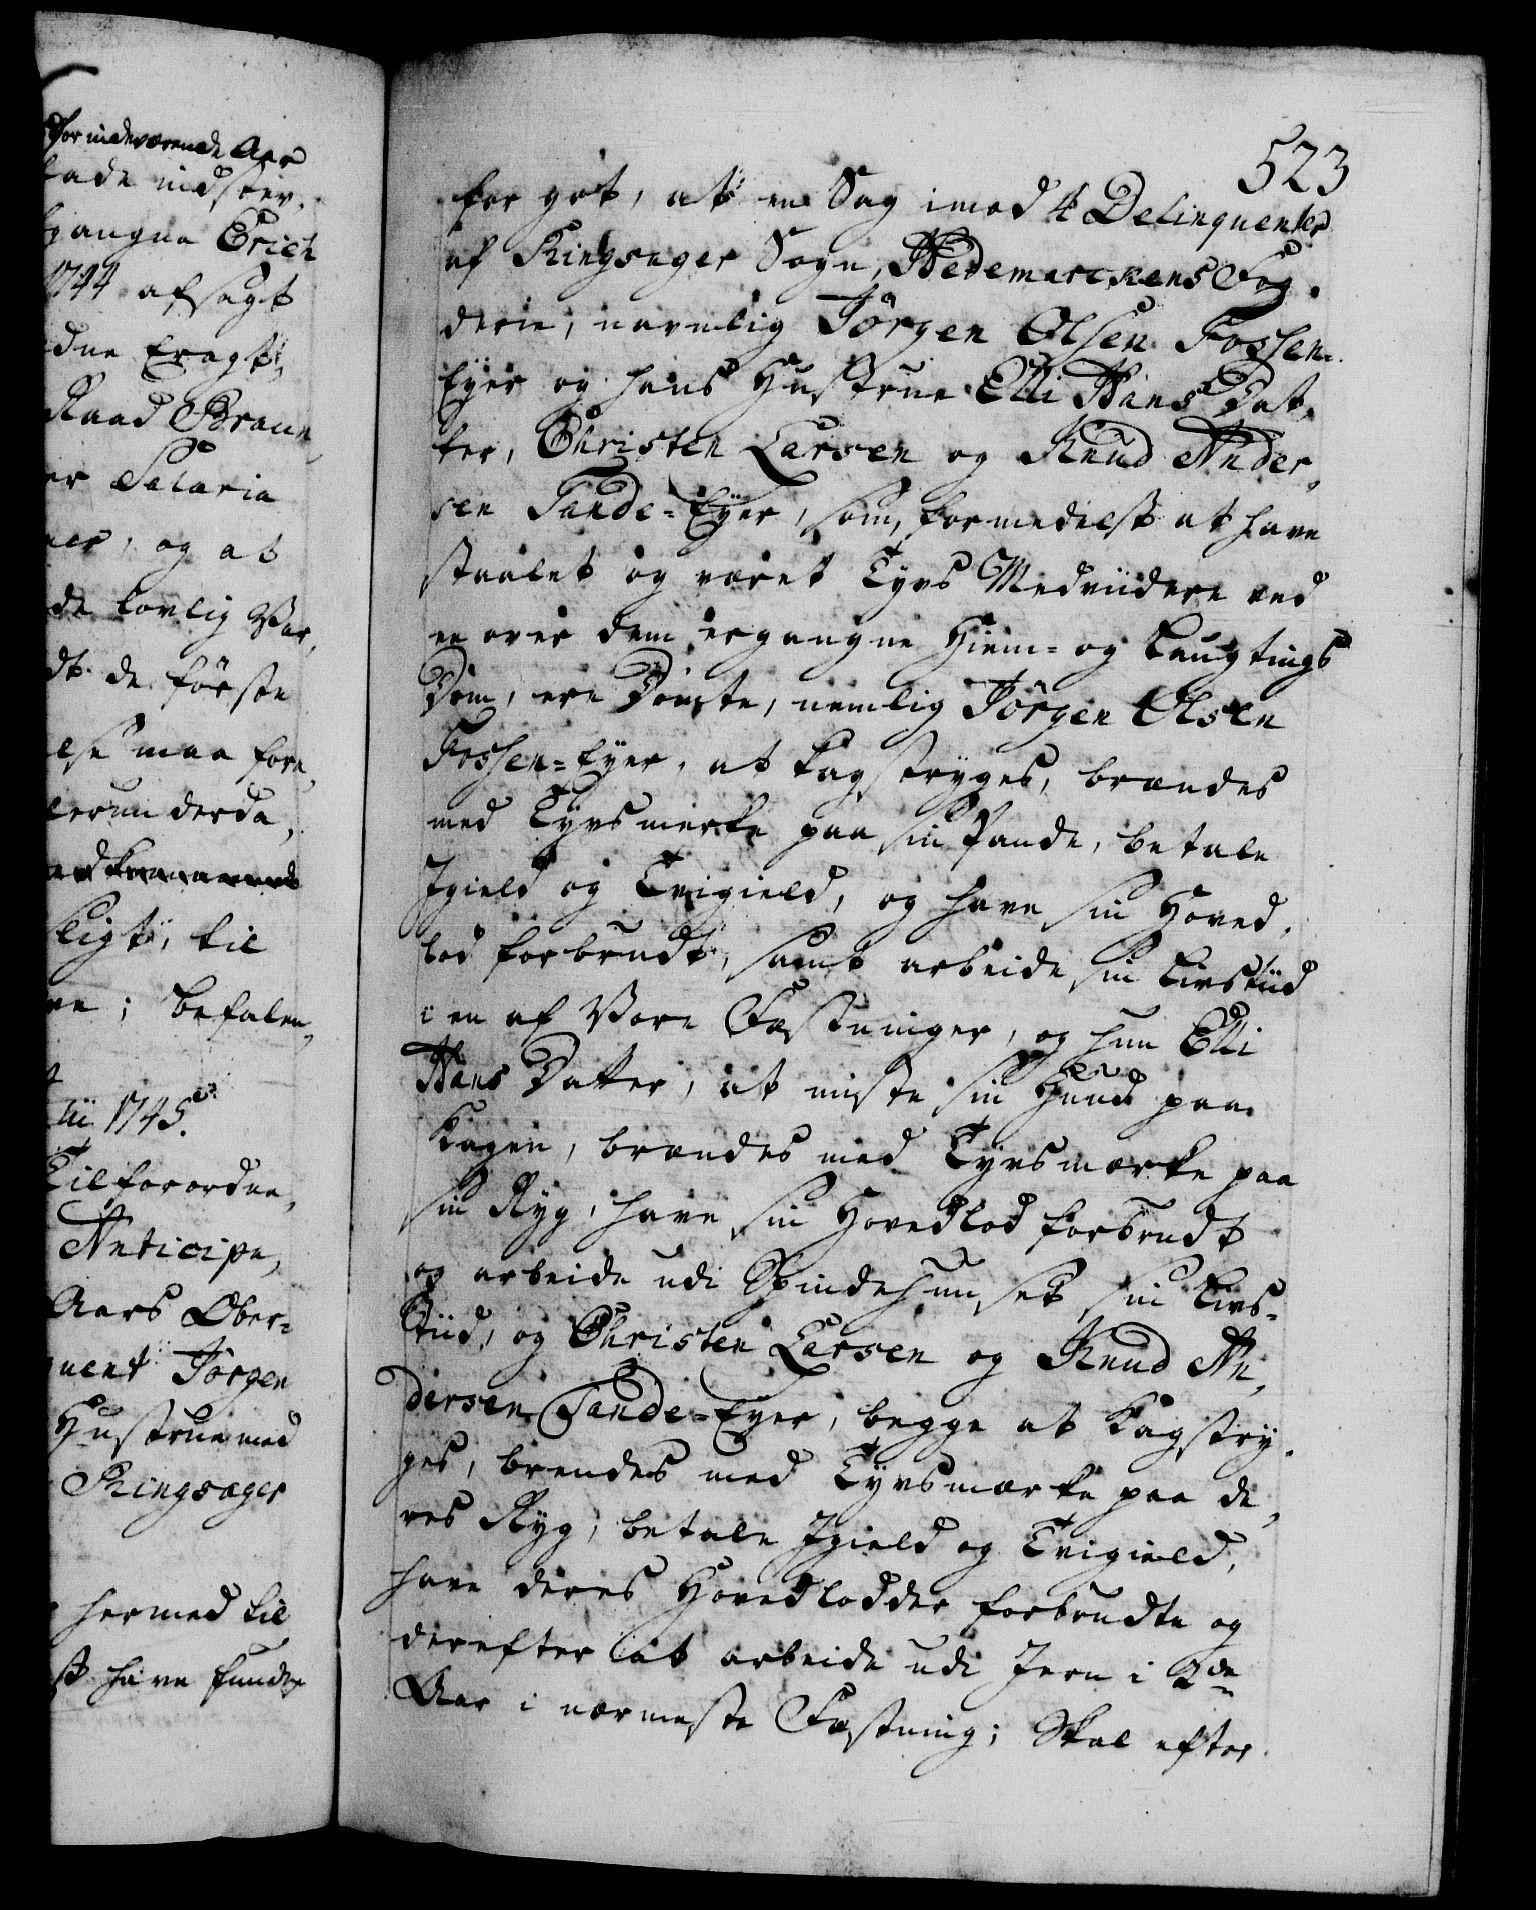 for inde værende Aar
lade indstev,
gangne Erich
1744 afsagt
dne Eragt,
Raad Braun,
er Salaria
ner, og at
de lovlig Var,
dt de förste
else maa fore,
lerunderda,
ligt, til
re; Befalen,
lii 1745.
Tilforordne,
Anticipe,
Aars Ober-
quent Jörgen
Hustrue med
Ringsager
hermed til
st have fundet
523
for got, at en Sag imod 4 Delinquenter
af Ringsager Sogn, Hedemarckens Fog,
derie, navnlig Jörgen Olsen Fossen-
Eyer og hans Hustrue Elli Hans Dat,
ter, Christen Larsen og Knud Ander,
sen Sande-Eyer, som, formedelst at have
staalet og været Tyvs Medviidere ved
en over dem ergangne Hiem- og Laugtings
Dom, ere Dömte, nemlig Jörgen Olsen
Fossen-Eyer, at kagstryges, brændes
med Tyvsmerke paa sin Pande, betale
Igield og Tvigield, og have sin Hoved,
lod forbrudt, samt arbeide sin Livstiid
i en af Vore Fæstninger, og hun Elli
Hans Datter, at miste sin Huud paa
Kagen, brændes med Tyvsmærke paa
sin Ryg, have sin Hovedlod forbrudt
og arbeide udi Spindehuuset sin Livs-
Tiid, og Christen Larsen og Knud An,
dersen Sande-Eyer, begge at Kagstry,
ges, brendes med Tyvsmærke paa de,
res Ryg, betale Igield og Tvigield,
have deres Hovedlodder forbrudte og
derefter at arbeide udi Jern i 2de
Aar i nærmeste Fæstning; Skal efter